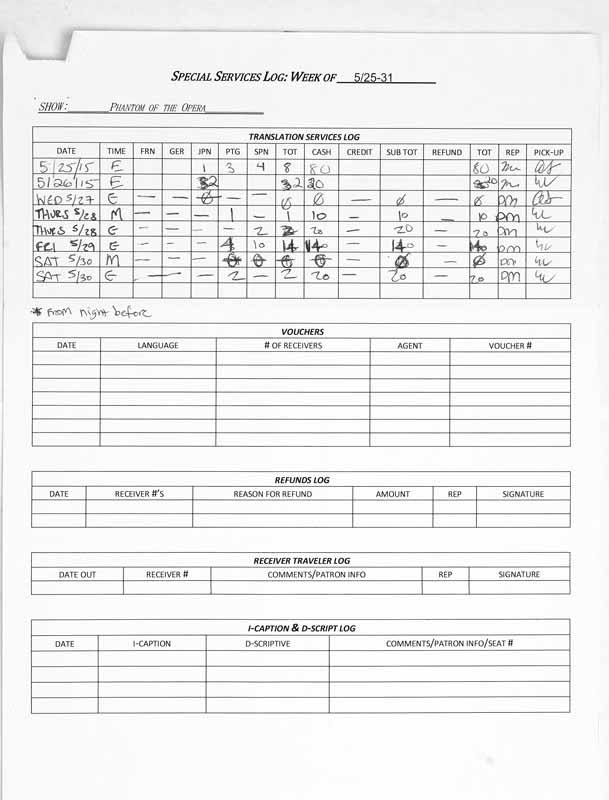 SPECIAL SERVICES LOG: WEEK OF 5/25-31
SHOW: PHANTOM OF THE OPERA
TRANSLATION SERVICES LOG
DATE TIME FRN GER JPN PTG SPN TOT CASH CREDIT SUB TOT REFUND TOT REP PICK-UP
5/25/15 E 1 3 4 8 80 80
5/26/15 E 2 2 20 20
WED 5/27 E — — 0 — — 0 0 — 0 — 0 DM
THURS 5/28 M — — — 1 — 1 10 — 10 — 10 DM
THURS 5/28 E — — — — 2 2 20 — 20 — 20 DM
FRI 5/29 E — — — 4 10 14 140 — 140 — 140 DM
SAT 5/30 M — — — 0 0 0 0 — 0 — 0 DM
SAT 5/30 E — — 2 — 2 20 — 20 — 20 DM
* From night before
VOUCHERS
DATE LANGUAGE # OF RECEIVERS AGENT VOUCHER #
REFUNDS LOG
DATE RECEIVER #'S REASON FOR REFUND AMOUNT REP SIGNATURE
RECEIVER TRAVELER LOG
DATE OUT RECEIVER # COMMENTS/PATRON INFO REP SIGNATURE
I-CAPTION & D-SCRIPT LOG
DATE I-CAPTION D-SCRIPTIVE COMMENTS/PATRON INFO/SEAT #